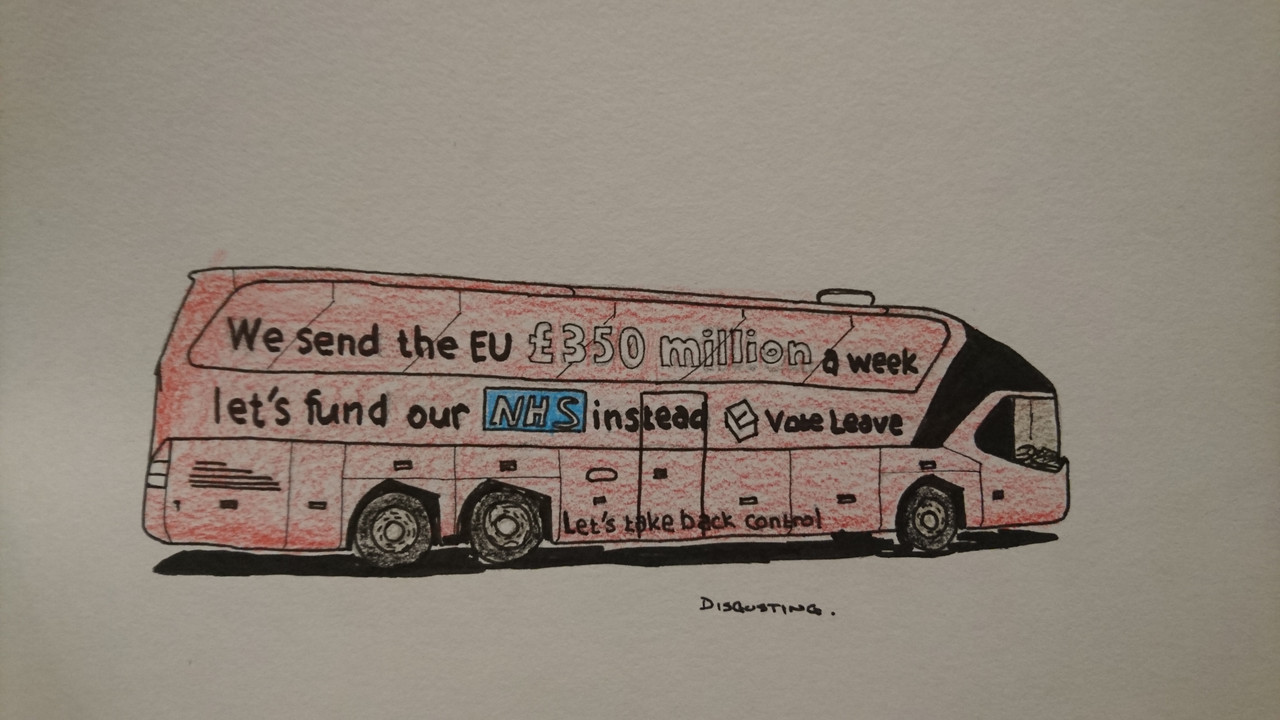 We send the EU £350 million a week
let's fund our NHS instead Vote Leave
Let's take back control
DISGUSTING.